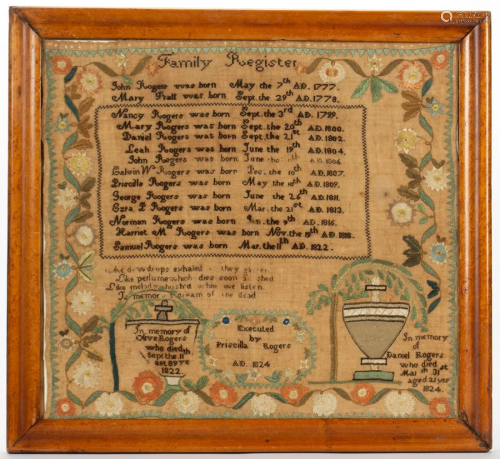 Family Register
John Rogers was born May the 7th AD. 1777.
Mary Pratt was born Sept. the 29th AD. 1778.
Nancy Rogers was born Sept. the 3rd AD. 1799.
Mary Rogers was born Sept. the 20th AD. 1800.
Daniel Rogers was born Sept. the 21st AD. 1802.
Leah Rogers was born June the 19th AD. 1804.
John Rogers was born June the AD. 1806.
W Rogers was born Dec. the 10th AD. 1807.
Priscilla Rogers was born May the 18th AD. 1809.
George Rogers was born June the 26th AD. 1811.
Ezra P Rogers was born Mar. the 21st AD. 1813.
Norman Rogers was born Jan. the 9th AD. 1816.
Harriet M Rogers was born Nov. the 18th AD. 1818.
Samuel Rogers was born Mar. the 11th AD. 1822.
Like dewdrops exhaled they
Like perfume which dies soon
Like melody hushed while we listen
Is memory's dream of the dead
In memory of
Olive Rogers
who died
Sept the 11th
aet 89 ys
1822.
Executed
by
Priscilla Rogers
AD. 1824
In memory
of
Daniel Rogers
who died
March 31st
aged 21 ys
1824.